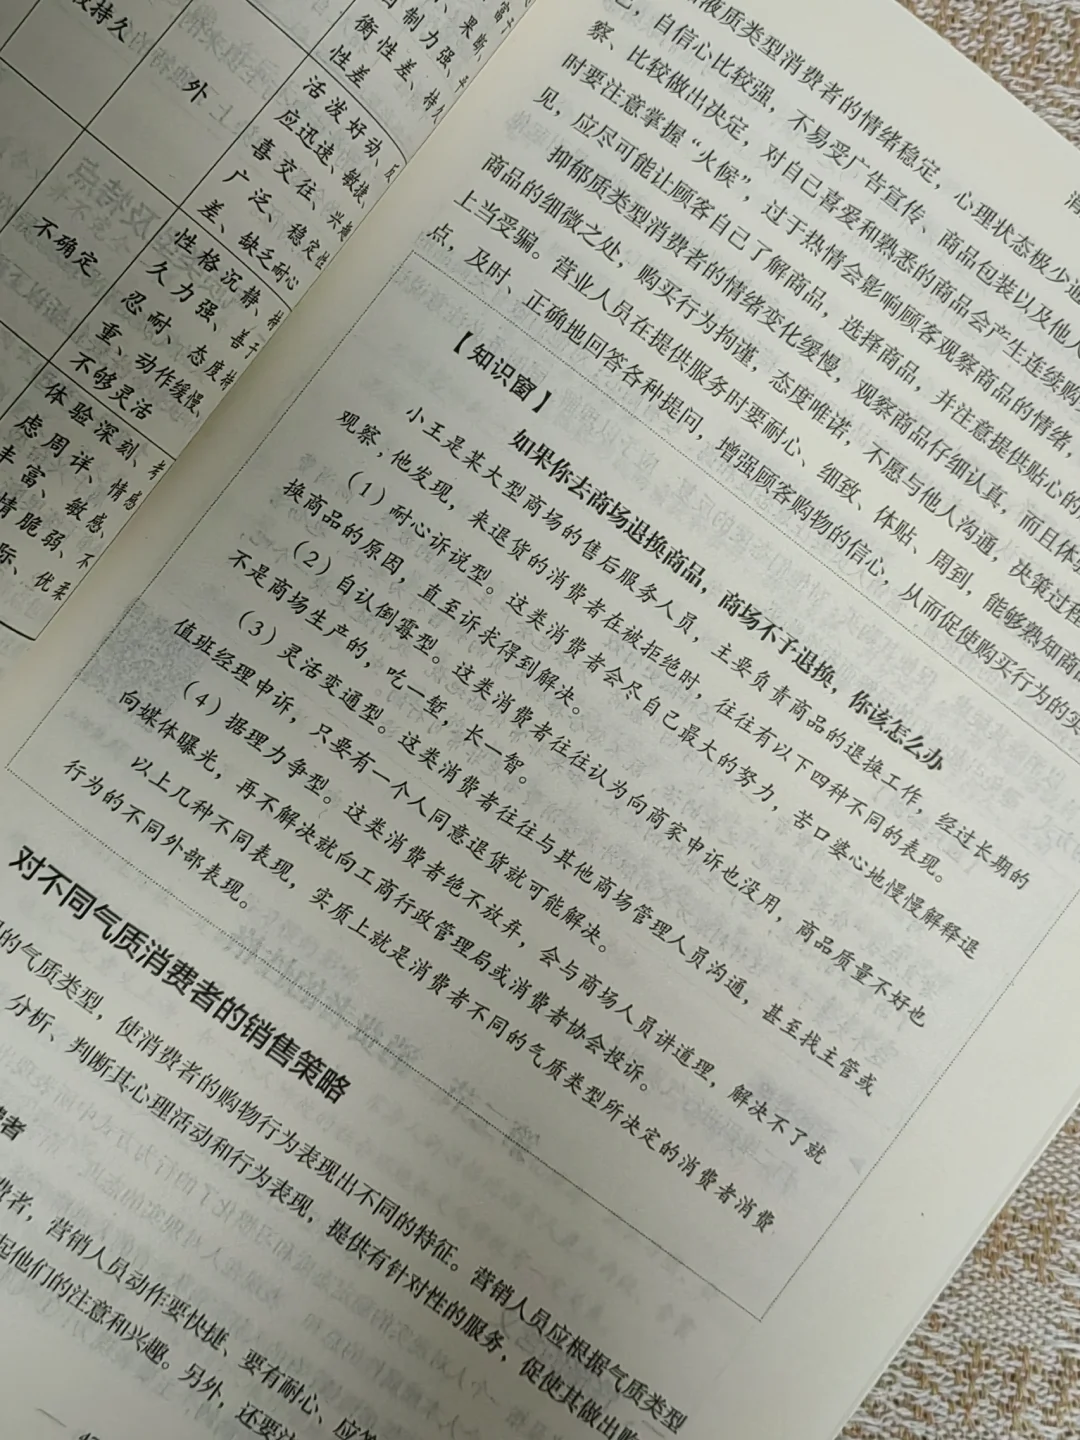 持久
外
不确定
衡性差、持久
性差
活泼好动、反
应迅速、敏捷、
喜交往、兴趣
广泛、稳定性
差、缺乏耐心
性格沉静、持
久力强、善于
忍耐、态度持
重、动作缓慢、
不够灵活
体验深刻、考
虑周详、情感
丰富、敏感、不
情脆弱、
优柔
液质类型消费者的情绪稳定，心理状态极少通
自信心比较强，不易受广告宣传、商品包装以及他人
察、比较做出决定，对自己喜爱和熟悉的商品会产生连续购
时要注意掌握“火候”，过于热情会影响顾客观察商品的情绪，
见，应尽可能让顾客自己了解商品，选择商品，并注意提供贴心的
抑郁质类型消费者的情绪变化缓慢，观察商品仔细认真，而且体
商品的细微之处，购买行为拘谨，态度唯诺，不愿与他人沟通，决策过程
上当受骗。营业人员在提供服务时要耐心、细致、体贴、周到，能够熟知商品
点，及时、正确地回答各种提问，增强顾客购物的信心，从而促使购买行为的实
【知识窗】
如果你去商场退换商品，商场不予退换，你该怎么办
小王是某大型商场的售后服务人员，主要负责商品的退换工作，经过长期的
观察，他发现，来退货的消费者在被拒绝时，往往有以下四种不同的表现。
（1）耐心诉说型。这类消费者会尽自己最大的努力，苦口婆心地慢慢解释退
换商品的原因，直至诉求得到解决。
（2）自认倒霉型。这类消费者往往认为向商家申诉也没用，商品质量不好也
不是商场生产的，吃一堑，长一智。
（3）灵活变通型。这类消费者往往与其他商场管理人员沟通，甚至找主管或
值班经理申诉，只要有一个人同意退货就可能解决。
（4）据理力争型。这类消费者绝不放弃，会与商场人员讲道理，解决不了就
向媒体曝光，再不解决就向工商行政管理局或消费者协会投诉。
以上几种不同表现，实质上就是消费者不同的气质类型所决定的消费者消费
行为的不同外部表现。
对不同气质消费者的销售策略
的气质类型，使消费者的购物行为表现出不同的特征。营销人员应根据气质类型
分析、判断其心理活动和行为表现，提供有针对性的服务，促使其做出购
费者
费者，营销人员动作要快捷、要有耐心、应
起他们的注意和兴趣。另外，还要注